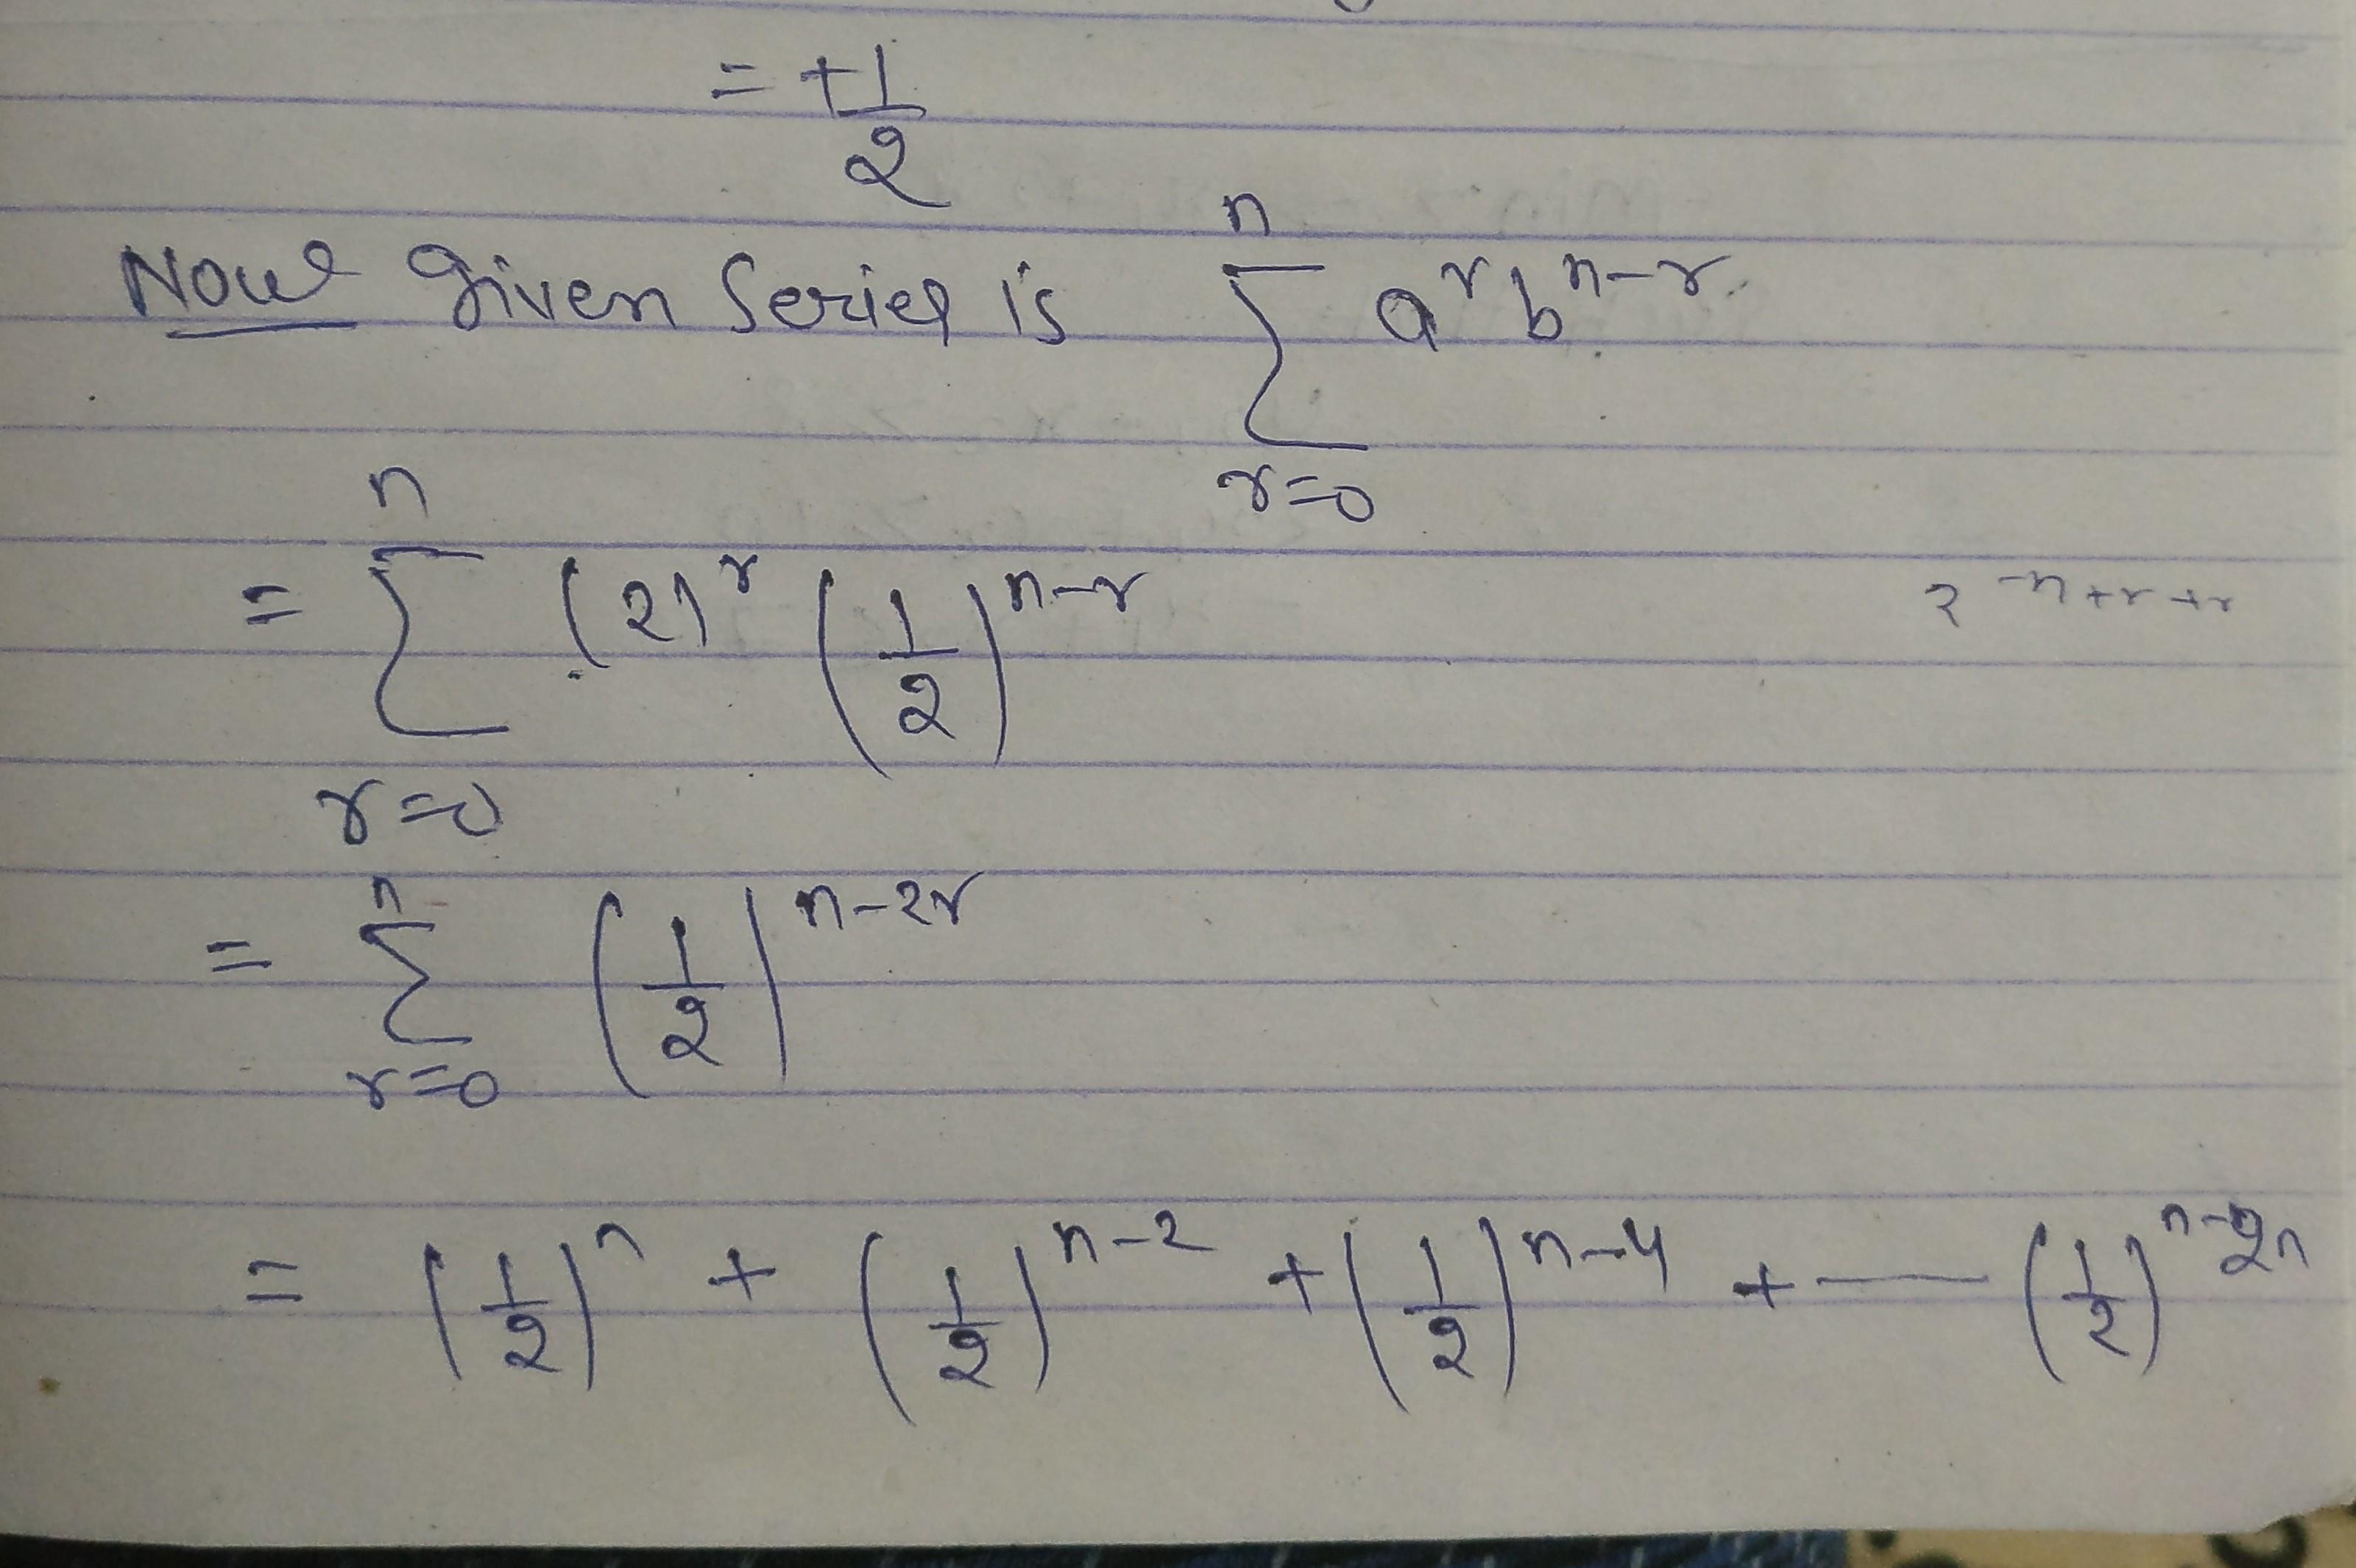 = +1/2
Now Given Series is \sum_{r=0}^{n} a^r b^{n-r}
= \sum_{r=0}^{n} (2)^r (1/2)^{n-r}
2^{-n+r+r}
= \sum_{r=0}^{n} (1/2)^{n-2r}
= (1/2)^n + (1/2)^{n-2} + (1/2)^{n-4} + — (1/2)^{n-2n}